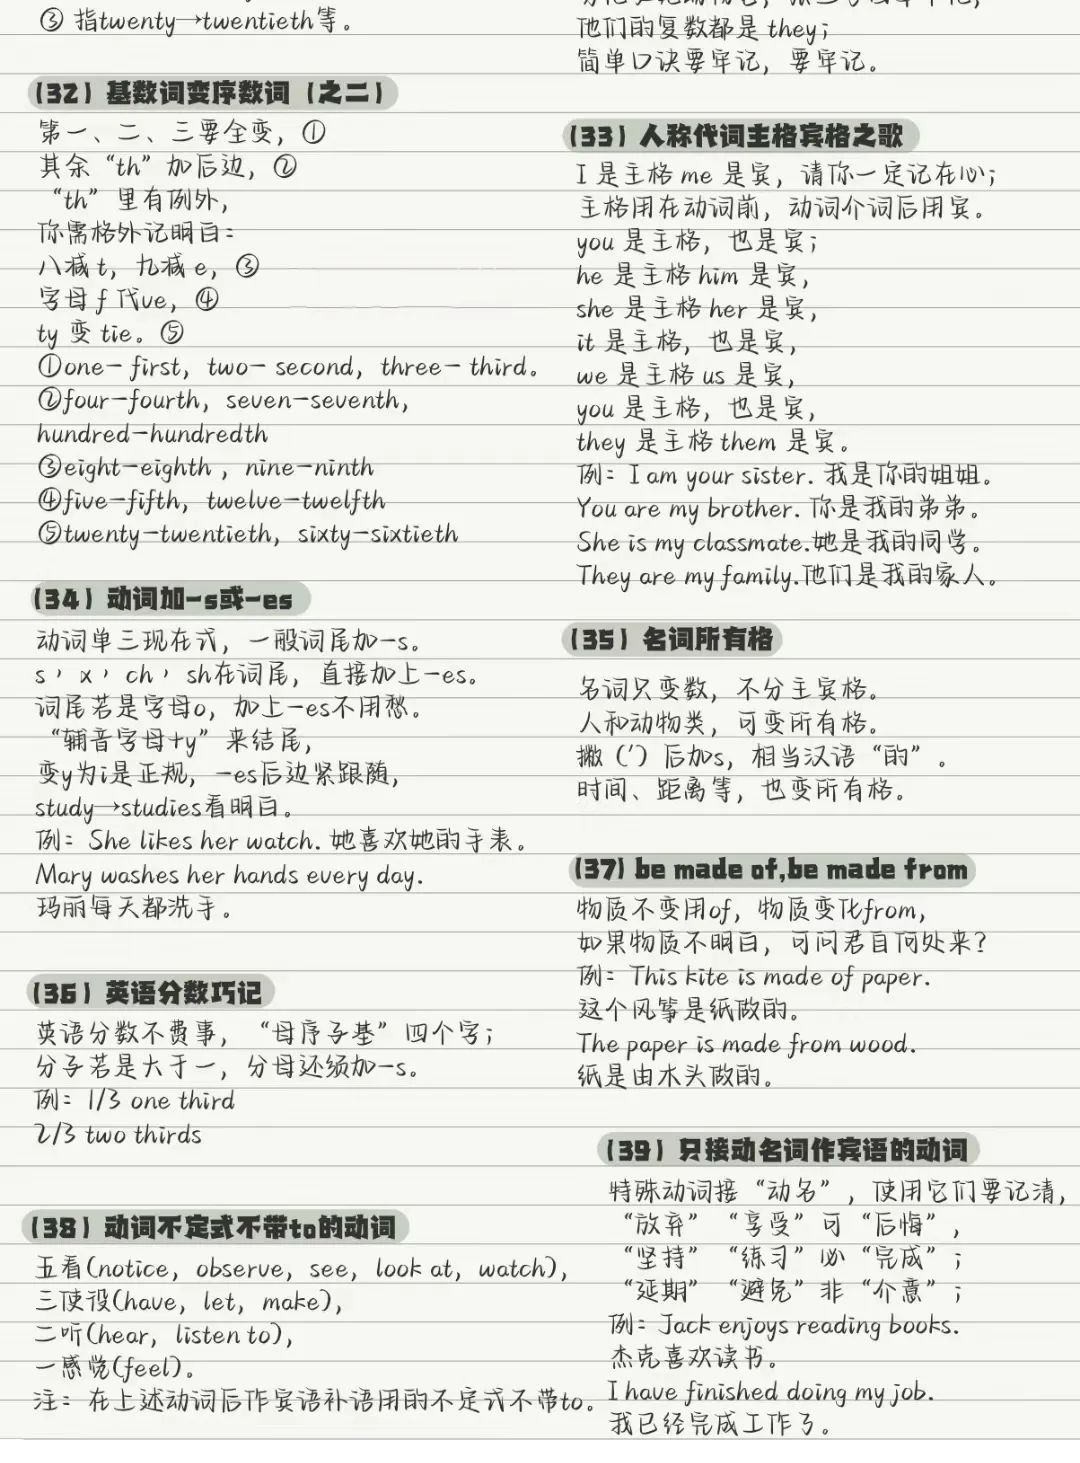 ③ 指twenty→twentieth等。
(32) 基数词变序数词（之二）
第一、二、三要全变，①
其余“th”加后边，②
“th”里有例外，
你需格外记明白：
八减t，九减e，③
字母f代ve，④
ty 变 tie。⑤
①one－first，two－second，three－third。
②four－fourth，seven－seventh，
hundred－hundredth
③eight－eighth，nine－ninth
④five－fifth，twelve－twelfth
⑤twenty－twentieth，sixty－sixtieth
(34) 动词加-s或-es
动词单三现在式，一般词尾加-s。
s，x，ch，sh在词尾，直接加上-es。
词尾若是字母o，加上-es不用愁。
“辅音字母+y”来结尾，
变y为i是正规，-es后边紧跟随，
study→studies看明白。
例：She likes her watch. 她喜欢她的手表。
Mary washes her hands every day.
玛丽每天都洗手。
(36) 英语分数巧记
英语分数不费事，“母序子基”四个字；
分子若是大于一，分母还须加-s。
例：1/3 one third
2/3 two thirds
(38) 动词不定式不带to的动词
五看(notice，observe，see，look at，watch)，
三使役(have，let，make)，
二听(hear，listen to)，
一感觉(feel)。
注：在上述动词后作宾语补语用的不定式不带to。
他们的复数都是 they；
简单口诀要牢记，要牢记。
(33) 人称代词主格宾格之歌
I 是主格 me 是宾，请你一定记在心；
主格用在动词前，动词介词后用宾。
you 是主格，也是宾；
he 是主格 him 是宾，
she 是主格 her 是宾，
it 是主格，也是宾，
we 是主格 us 是宾，
you 是主格，也是宾，
they 是主格 them 是宾。
例：I am your sister. 我是你的姐姐。
You are my brother. 你是我的弟弟。
She is my classmate.她是我的同学。
They are my family.他们是我的家人。
(35) 名词所有格
名词只变数，不分主宾格。
人和动物类，可变所有格。
撇（′）后加s，相当汉语“的”。
时间、距离等，也变所有格。
(37) be made of,be made from
物质不变用of，物质变化from，
如果物质不明白，可问君自何处来？
例：This kite is made of paper.
这个风筝是纸做的。
The paper is made from wood.
纸是由木头做的。
(39) 只接动名词作宾语的动词
特殊动词接“动名”，使用它们要记清，
“放弃”“享受”可“后悔”，
“坚持”“练习”必“完成”；
“延期”“避免”非“介意”；
例：Jack enjoys reading books.
杰克喜欢读书。
I have finished doing my job.
我已经完成工作了。